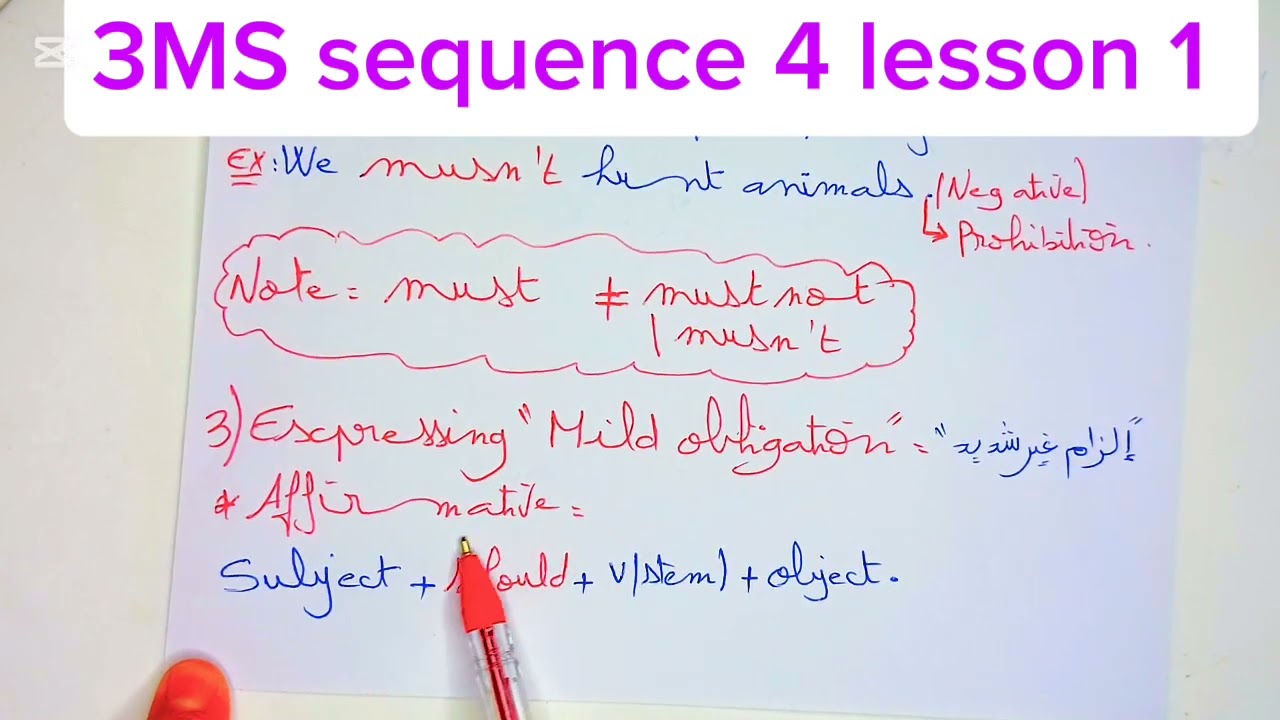 3MS sequence 4 lesson 1
Ex: We musn't hunt animals. (Negative)
↳ Prohibition.
Note = must ≠ must not
| musn't
3) Expressing "Mild obligation" = "إلزام غير شديد"
* Affirmative =
Subject + should + V(stem) + object.